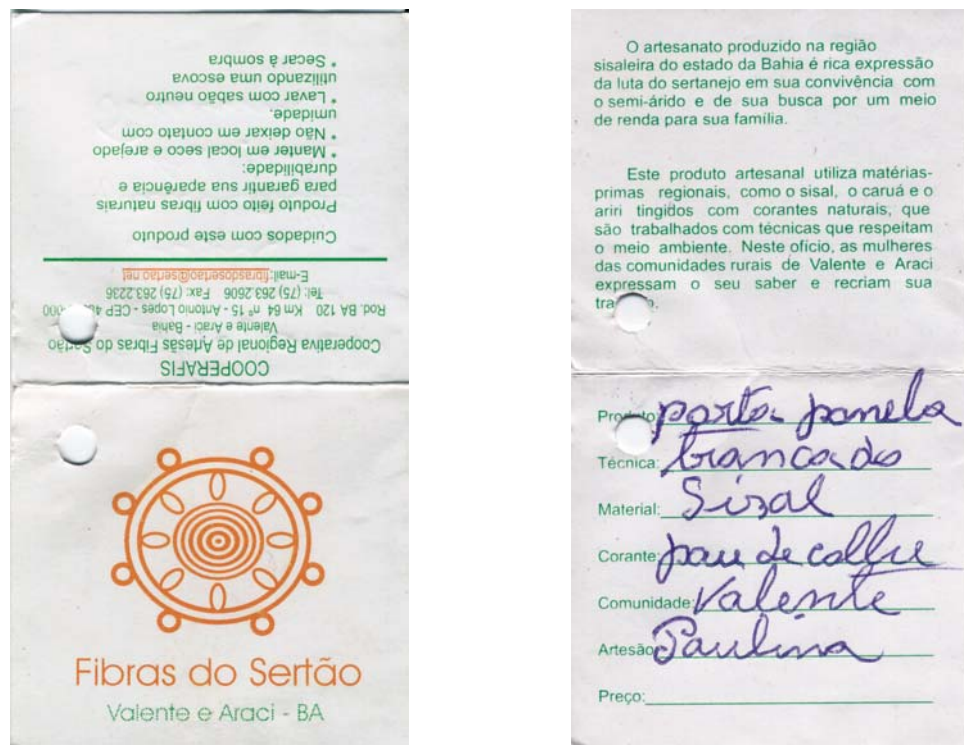 COOPERAFIS
Cooperativa Regional de Artesãs Fibras do Sertão
Valente e Araci - Bahia
Rod. BA 120 Km 64 nº 15 - Antonio Lopes - CEP
Tel: (75) 263.2606 Fax: (75) 263.2236
E-mail:fibrasdosertao@sertao.net
Cuidados com este produto
Produto feito com fibras naturais
para garantir sua aparência e
durabilidade:
* Manter em local seco e arejado
* Não deixar em contato com
umidade.
* Lavar com sabão neutro
utilizando uma escova
* Secar à sombra
Fibras do Sertão
Valente e Araci - BA
O artesanato produzido na região
sisaleira do estado da Bahia é rica expressão
da luta do sertanejo em sua convivência com
o semi-árido e de sua busca por um meio
de renda para sua família.
Este produto artesanal utiliza matérias-
primas regionais, como o sisal, o caruá e o
ariri tingidos com corantes naturais, que
são trabalhados com técnicas que respeitam
o meio ambiente. Neste ofício, as mulheres
das comunidades rurais de Valente e Araci
expressam o seu saber e recriam sua
Produto: porta panela
Técnica: trancado
Material: Sizal
Corante: pau de
Comunidade: Valente
Artesão: Paulina
Preço: